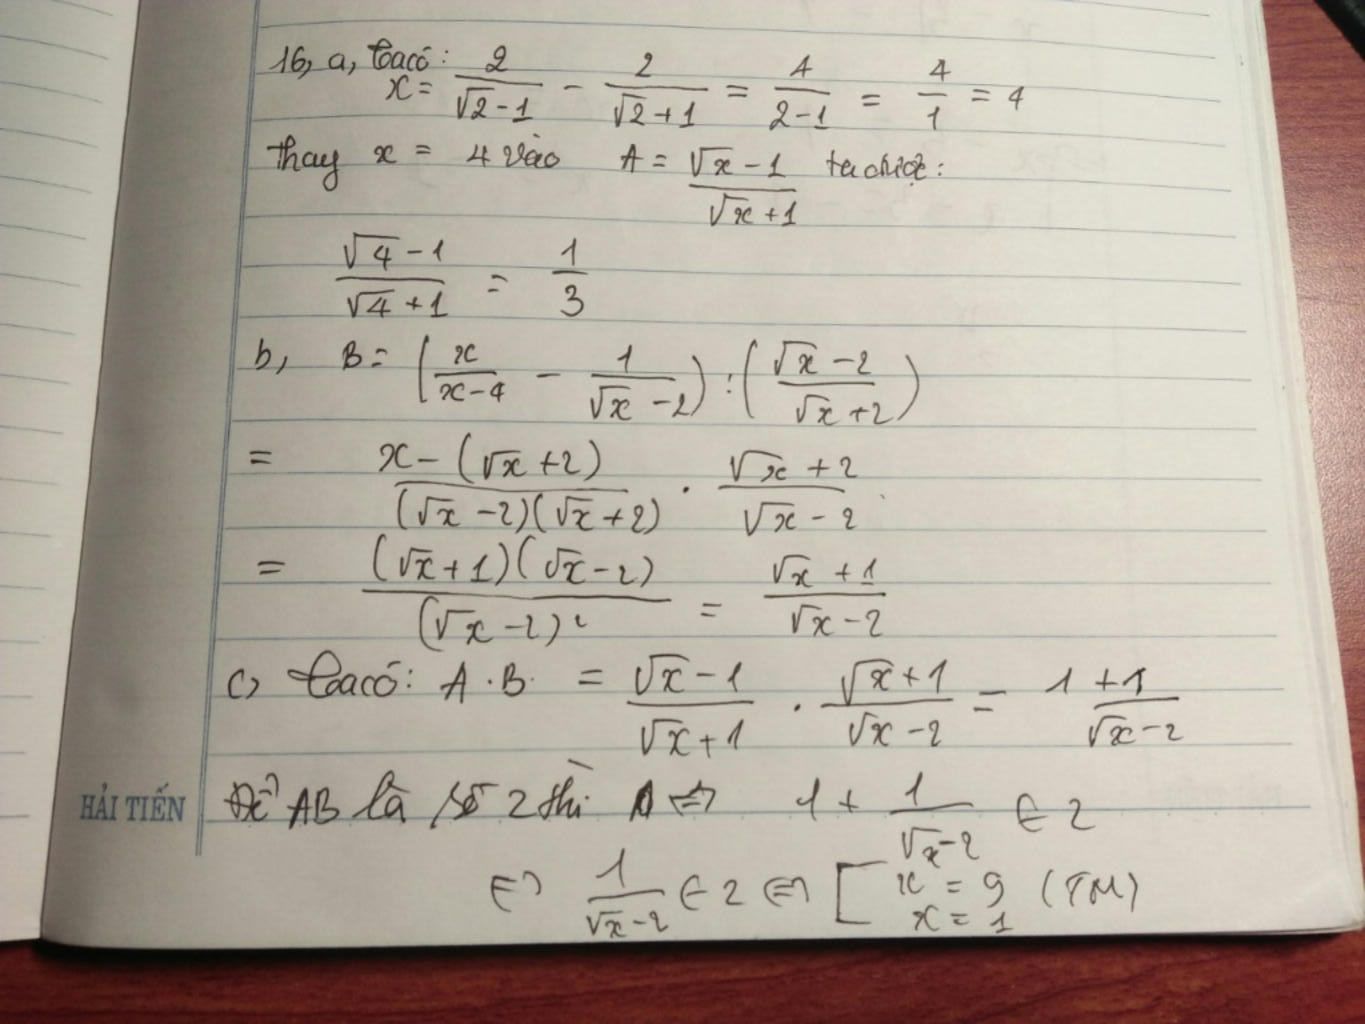 16, a, Ta có:
x = 2/(√2 - 1) - 2/(√2 + 1) = 4/(2 - 1) = 4/1 = 4
Thay x = 4 vào A = (√x - 1)/(√x + 1) ta được:
(√4 - 1)/(√4 + 1) = 1/3
b, B = (x/(x - 4) - 1/(√x - 2)) : ((√x - 2)/(√x + 2))
= (x - (√x + 2))/((√x - 2)(√x + 2)) . (√x + 2)/(√x - 2)
= ((√x + 1)(√x - 2))/(√x - 2)² = (√x + 1)/(√x - 2)
c, Ta có: A . B = (√x - 1)/(√x + 1) . (√x + 1)/(√x - 2) = 1 + 1/(√x - 2)
HẢI TIẾN
Để AB là số Z thì ⇔ 1 + 1/(√x - 2) ∈ Z
⇔ 1/(√x - 2) ∈ Z ⇔ [ x = 9 (TM)
x = 1